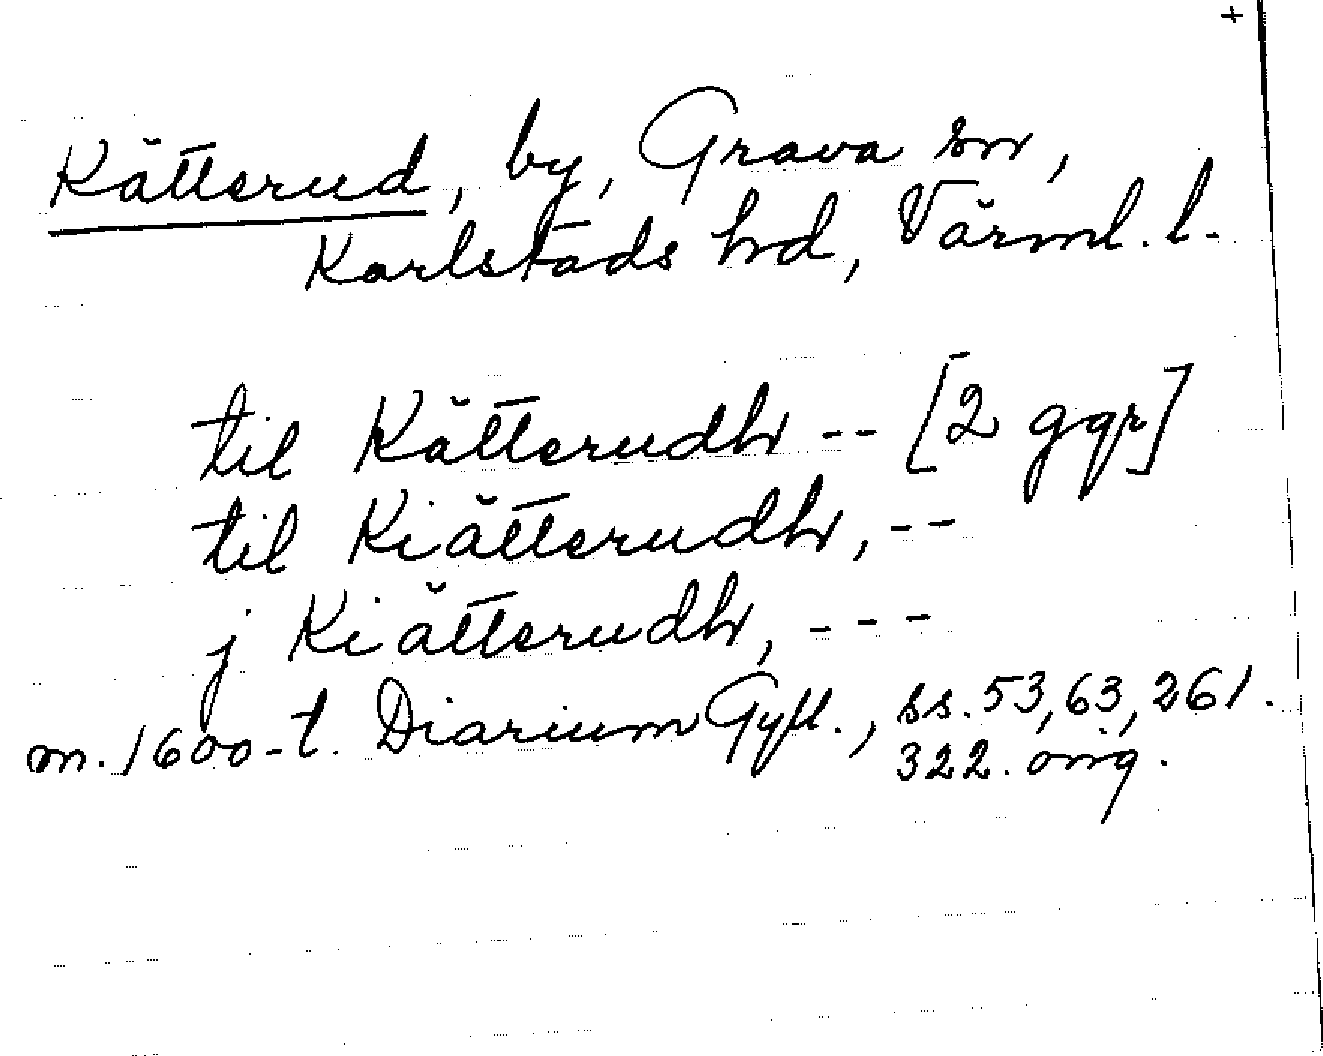 +
Kätterud, by, Grava sn,
Karlstads hd, Värml. l.
til Kätterudh -- [2 ggr]
til Kiätterudh, --
j Kiätterudh, ---
m. 1600-t. Diarium Gyll., ss. 53, 63, 261.
322. orig.